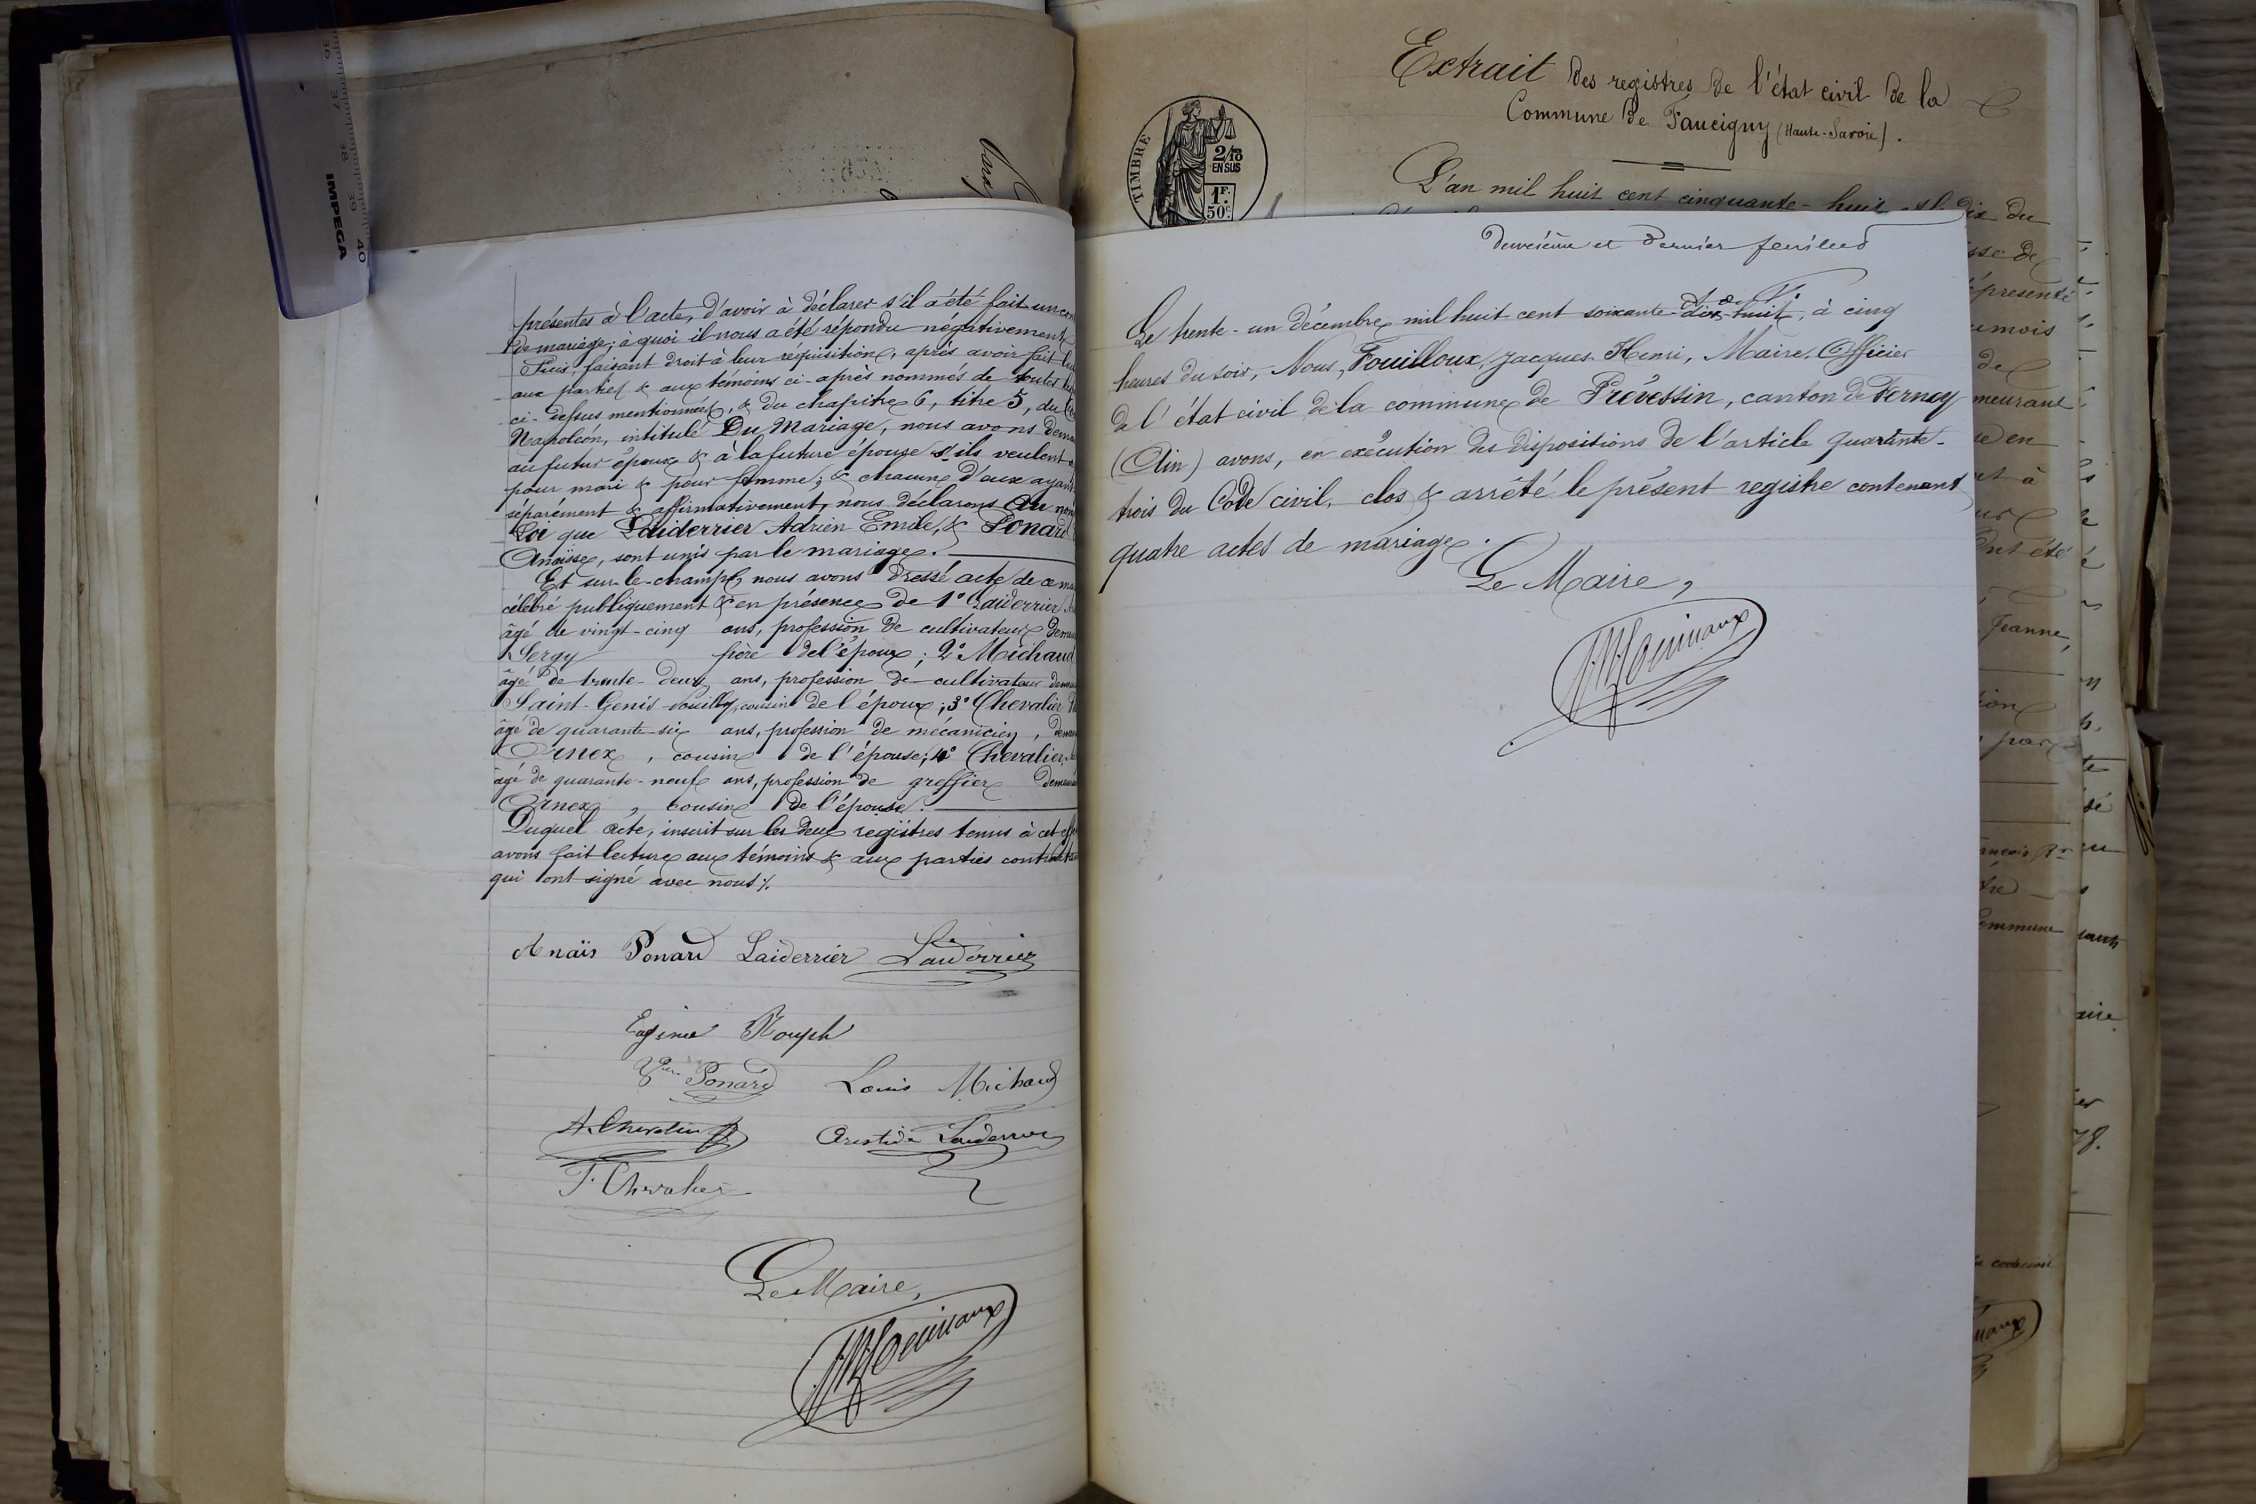 36 37 38 39 40
IMPEGA
présentes à l'acte, d'avoir à déclarer s'il a été fait un con
de mariage; à quoi il nous a été répondu négativement
faisant droit à leur réquisition, après avoir fait
aux parties & aux témoins ci-après nommés de toutes
ci-dessus mentionnées, & du chapitre 6, titre 5, du
Napoléon, intitulé Du Mariage, nous avons
au futur époux & à la future épouse s'ils veulent
pour mari & pour femme; & chacun d'eux ayant
séparément & affirmativement, nous déclarons au nom
Loi que Laiderrier Adrien Emile, & Ponard
Anaïse, sont unis par le mariage.
Et sur-le-champ, nous avons dressé acte de ce
célébré publiquement & en présence de 1° Laiderrier
âgé de vingt-cinq ans, profession de cultivateur
Sergy frère de l'époux; 2° Michaud
âgé de trente-deux ans, profession de cultivateur
Saint-Genis-Pouilly, cousin de l'époux; 3° Chevalier
âgé de quarante-six ans, profession de mécanicien,
Ornex, cousin de l'épouse; 4° Chevalier
âgé de quarante-neuf ans, profession de greffier
Ornex, cousin de l'épouse.
Duquel acte, inscrit sur les deux registres tenus à cet
avons fait lecture aux témoins & aux parties
qui ont signé avec nous
Anaïs Ponard Laiderrier Laiderrier
Rouph
Ponard Louis Michaud
A. Chevalier Aristide Laiderrier
F. Chevalier
Le Maire,
Extrait des registres de l'état civil de la
Commune de Faucigny (Haute-Savoie).
TIMBRE
2/10
EN SUS
1F.
50c.
L'an mil huit cent cinquante-huit le dix du
deuxième et dernier feuillet
Le trente-un décembre mil huit cent soixante-dix-huit, à cinq
heures du soir, Nous, Fouilloux, Jacques Henri, Maire, Officier
de l'état civil de la commune de Prévessin, canton de Ferney
(Ain) avons, en exécution des dispositions de l'article quarante-
trois du Code civil, clos & arrêté le présent registre contenant
quatre actes de mariage.
Le Maire,
meurant
Jeanne,